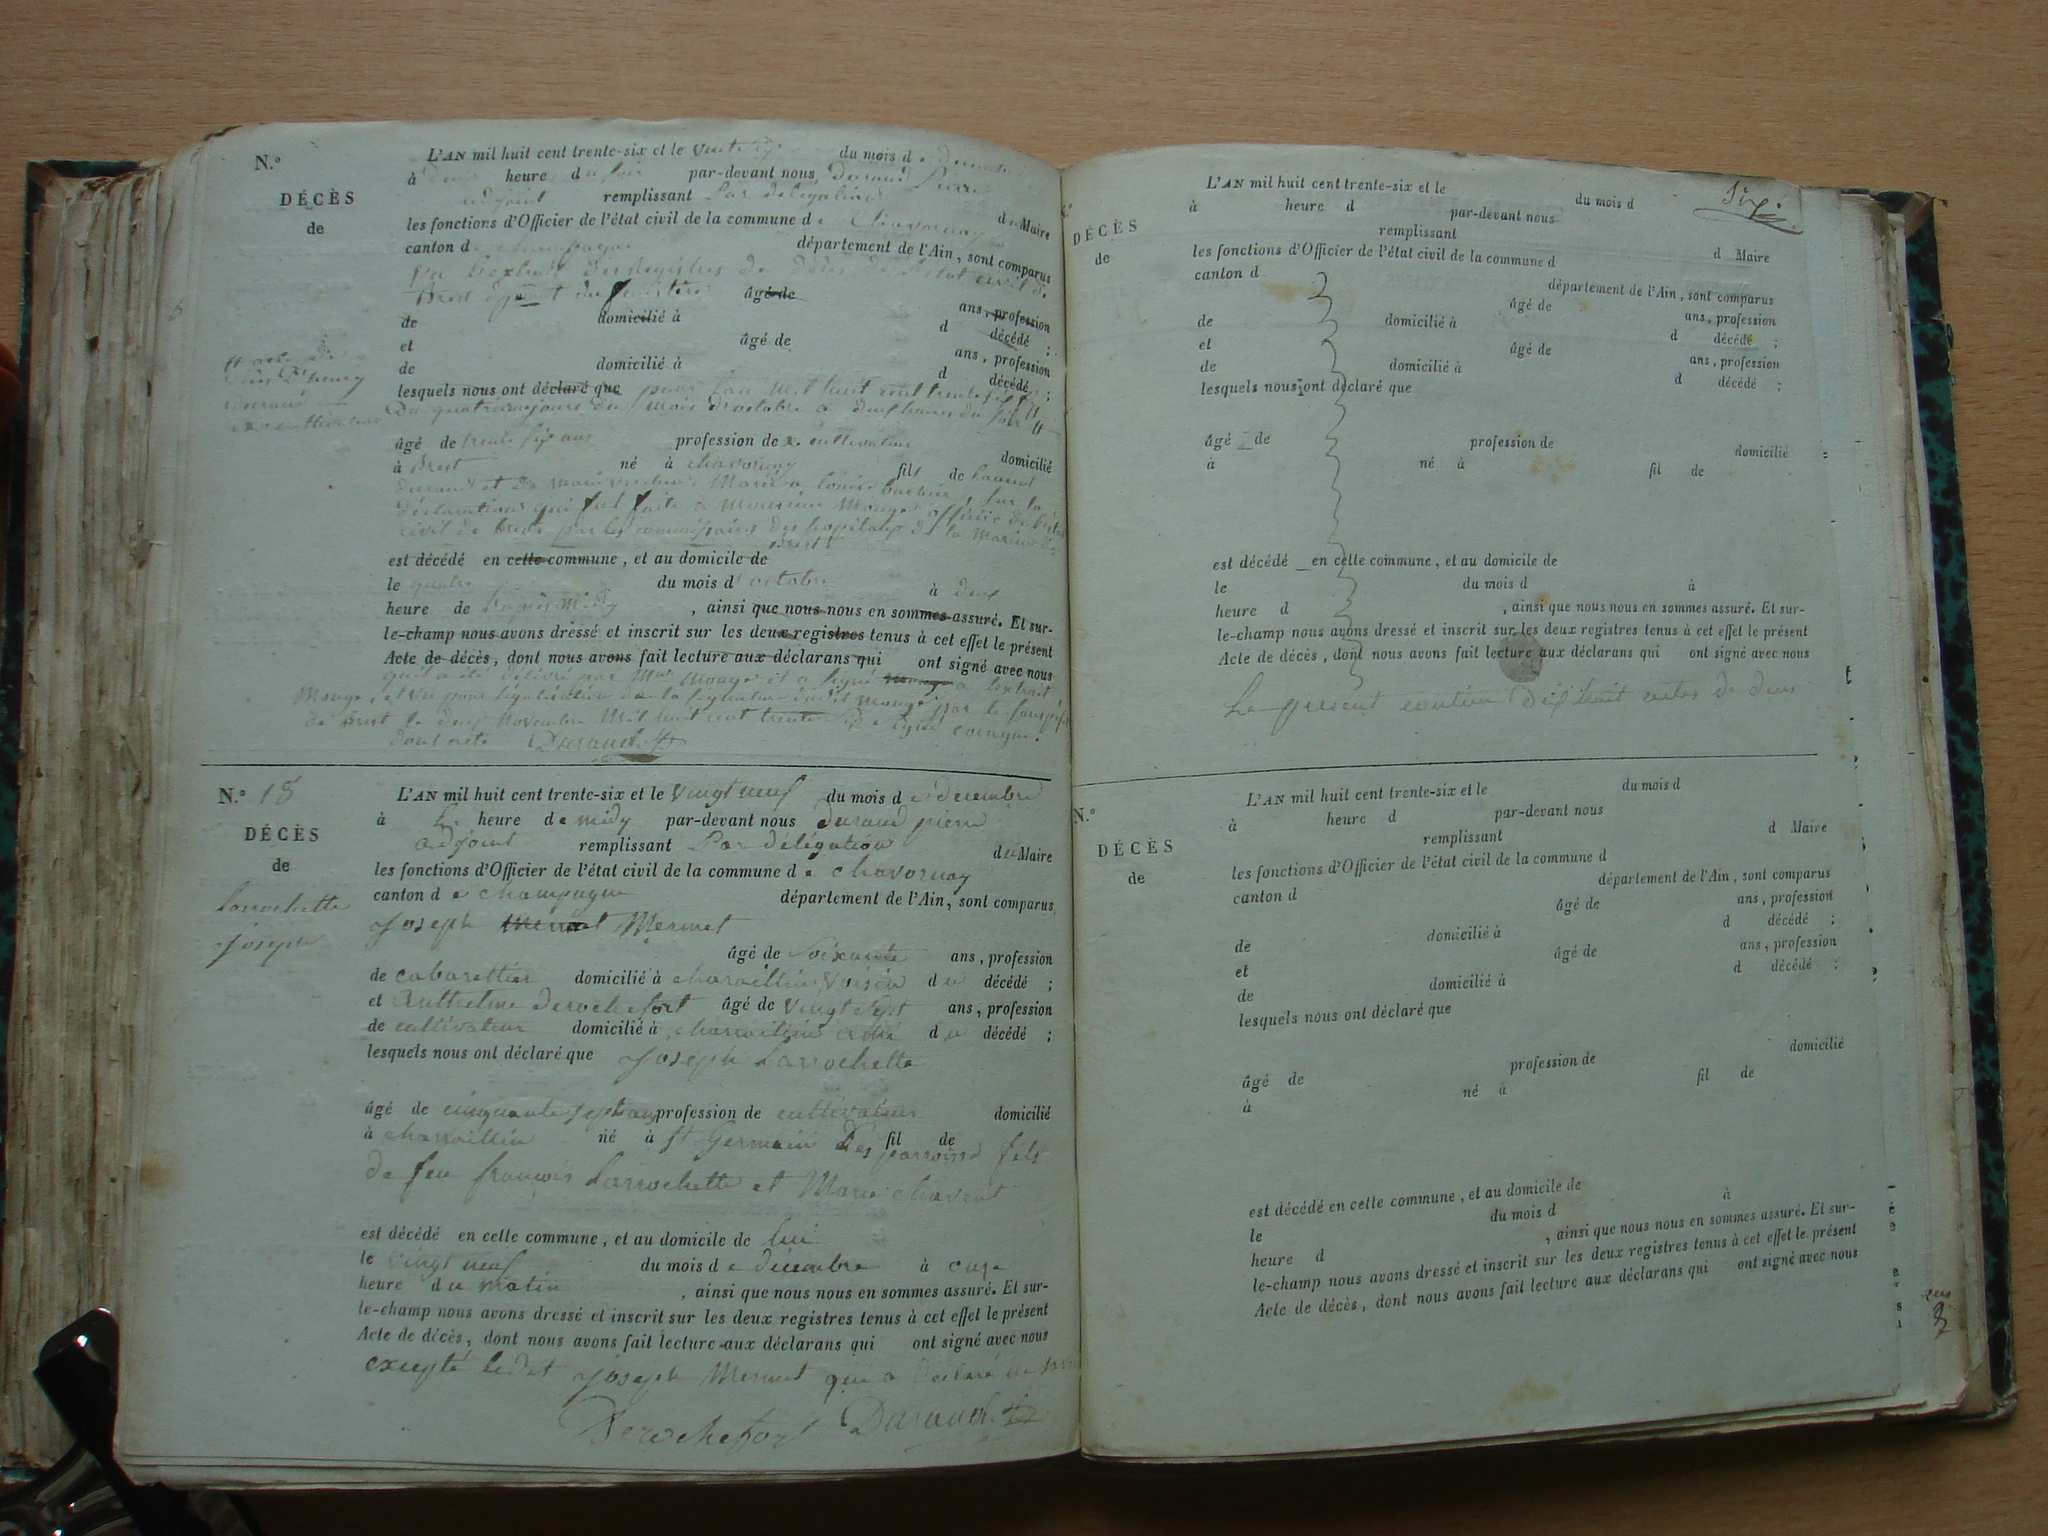 N.º
DÉCÈS
de
L'AN mil huit cent trente-six et le vente du mois de
à deux heure du soir par-devant nous Durand Pierre
adjoint remplissant Par délégation
les fonctions d'Officier de l'état civil de la commune de chavornay du Maire
canton de champagne département de l'Ain, sont comparus
Vu l'extrait des Registres de Décès de l'état civil de
Brest âgé de
ans, profession
de domicilié à d décédé ;
et âgé de ans, profession
de domicilié à d décédé ;
lesquels nous ont déclaré que pour l'an mil huit cent trente six
Du quatrieme jours du mois d'octobre a deux heures du soir
âgé de trente six ans profession de cultivateur domicilié
à Brest né à chavornay fils de laurent
durand et de marie Marié a louise , sur la
déclaration qui fut faite a Monsieur Monge officier de l'état
civil de brest par les commissaires des hopitaux de la Marine
Brest
est décédé en cette commune, et au domicile de
le quatre du mois d octobre à deux
heure de l'après Midy , ainsi que nous nous en sommes assuré. Et sur-
le-champ nous avons dressé et inscrit sur les deux registres tenus à cet effet le présent
Acte de décès, dont nous avons fait lecture aux déclarans qui ont signé avec nous
qu'il a été délivré par Mr Monge et a signé a l'extrait
Monge, et vu pour légalisation de la signature dudit monge par le
de Brest le deux Novembre Mil huit cent trente signé
dont acte Durand
N.º 18
DÉCÈS
de
Larrochette
Joseph
L'AN mil huit cent trente-six et le vingt neuf du mois de decembre
à heure de midy par-devant nous durand pierre
adjoint remplissant Par délégation du Maire
les fonctions d'Officier de l'état civil de la commune de chavornay
canton de champagne département de l'Ain, sont comparus
Joseph Mermet Mermet
âgé de Soixante ans, profession
de cabarettier domicilié à charaillin voisin du décédé ;
et Anthelme derochefort âgé de vingt sept ans, profession
de cultivateur domicilié à charaillin du décédé ;
lesquels nous ont déclaré que Joseph Larrochette
âgé de cinquante sept ans profession de cultivateur domicilié
à charaillin né à St Germain Les paroisse fil de fils
de feu françois Larrochette et Marie chavent
est décédé en cette commune, et au domicile de lui
le vingt neuf du mois de décembre à onze
heure du matin , ainsi que nous nous en sommes assuré. Et sur-
le-champ nous avons dressé et inscrit sur les deux registres tenus à cet effet le présent
Acte de décès, dont nous avons fait lecture aux déclarans qui ont signé avec nous
excepté ledit Joseph Mermet qui a déclaré ne
Derochefort Durand
DÉCÈS
de
L'AN mil huit cent trente-six et le du mois d
à heure d par-devant nous
remplissant d Maire
les fonctions d'Officier de l'état civil de la commune d
canton d département de l'Ain, sont comparus
âgé de ans, profession
de domicilié à d décédé ;
et âgé de ans, profession
de domicilié à d décédé ;
lesquels nous ont déclaré que
âgé de profession de domicilié
à né à fil de
est décédé en cette commune, et au domicile de
le du mois d à
heure d , ainsi que nous nous en sommes assuré. Et sur-
le-champ nous avons dressé et inscrit sur les deux registres tenus à cet effet le présent
Acte de décès, dont nous avons fait lecture aux déclarans qui ont signé avec nous
Le présent contien dix huit actes de deces
N.º
DÉCÈS
de
L'AN mil huit cent trente-six et le du mois d
à heure d par-devant nous
remplissant d Maire
les fonctions d'Officier de l'état civil de la commune d
canton d département de l'Ain, sont comparus
âgé de ans, profession
de domicilié à d décédé ;
et âgé de ans, profession
de domicilié à d décédé ;
lesquels nous ont déclaré que
âgé de profession de domicilié
à né à fil de
est décédé en cette commune, et au domicile de
le du mois d à
heure d , ainsi que nous nous en sommes assuré. Et sur-
le-champ nous avons dressé et inscrit sur les deux registres tenus à cet effet le présent
Acte de décès, dont nous avons fait lecture aux déclarans qui ont signé avec nous